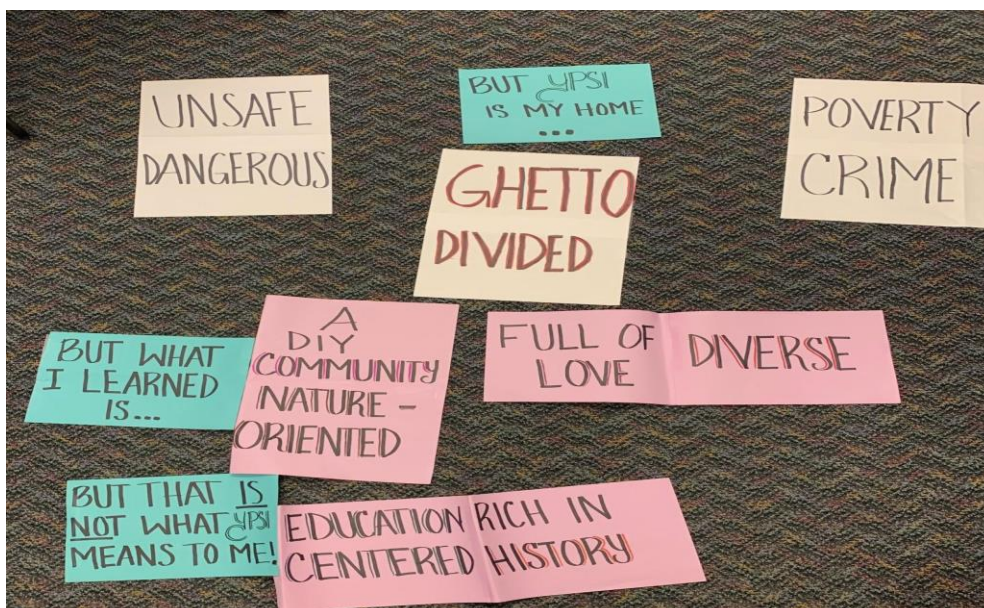 UNSAFE
DANGEROUS
BUT YPSI
IS MY HOME
...
POVERTY
CRIME
GHETTO
DIVIDED
BUT WHAT
I LEARNED
IS...
A
DIY
COMMUNITY
NATURE-
ORIENTED
FULL OF
LOVE
DIVERSE
BUT THAT IS
NOT WHAT YPSI
MEANS TO ME!
EDUCATION
CENTERED
RICH IN
HISTORY